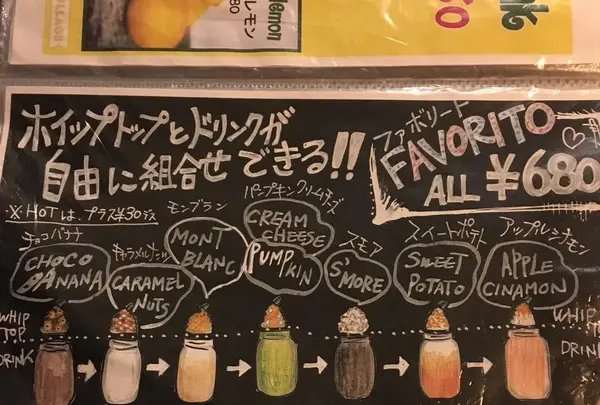 VILLAGE
lemon
レモン
80
ホイップトップとドリンクが
自由に組合せできる!!
ファボリート
FAVORITO
ALL ¥680
※HOTは、プラス¥30デス
チョコバナナ
CHOCO
BANANA
キャラメルナッツ
CARAMEL
NUTS
モンブラン
MONT
BLANC
パンプキンクリームチーズ
CREAM
CHEESE
PUMPKIN
スモア
S'MORE
スイートポテト
SWEET
POTATO
アップルシナモン
APPLE
CINAMON
WHIP
TOP
DRINK
WHIP
TOP
DRINK